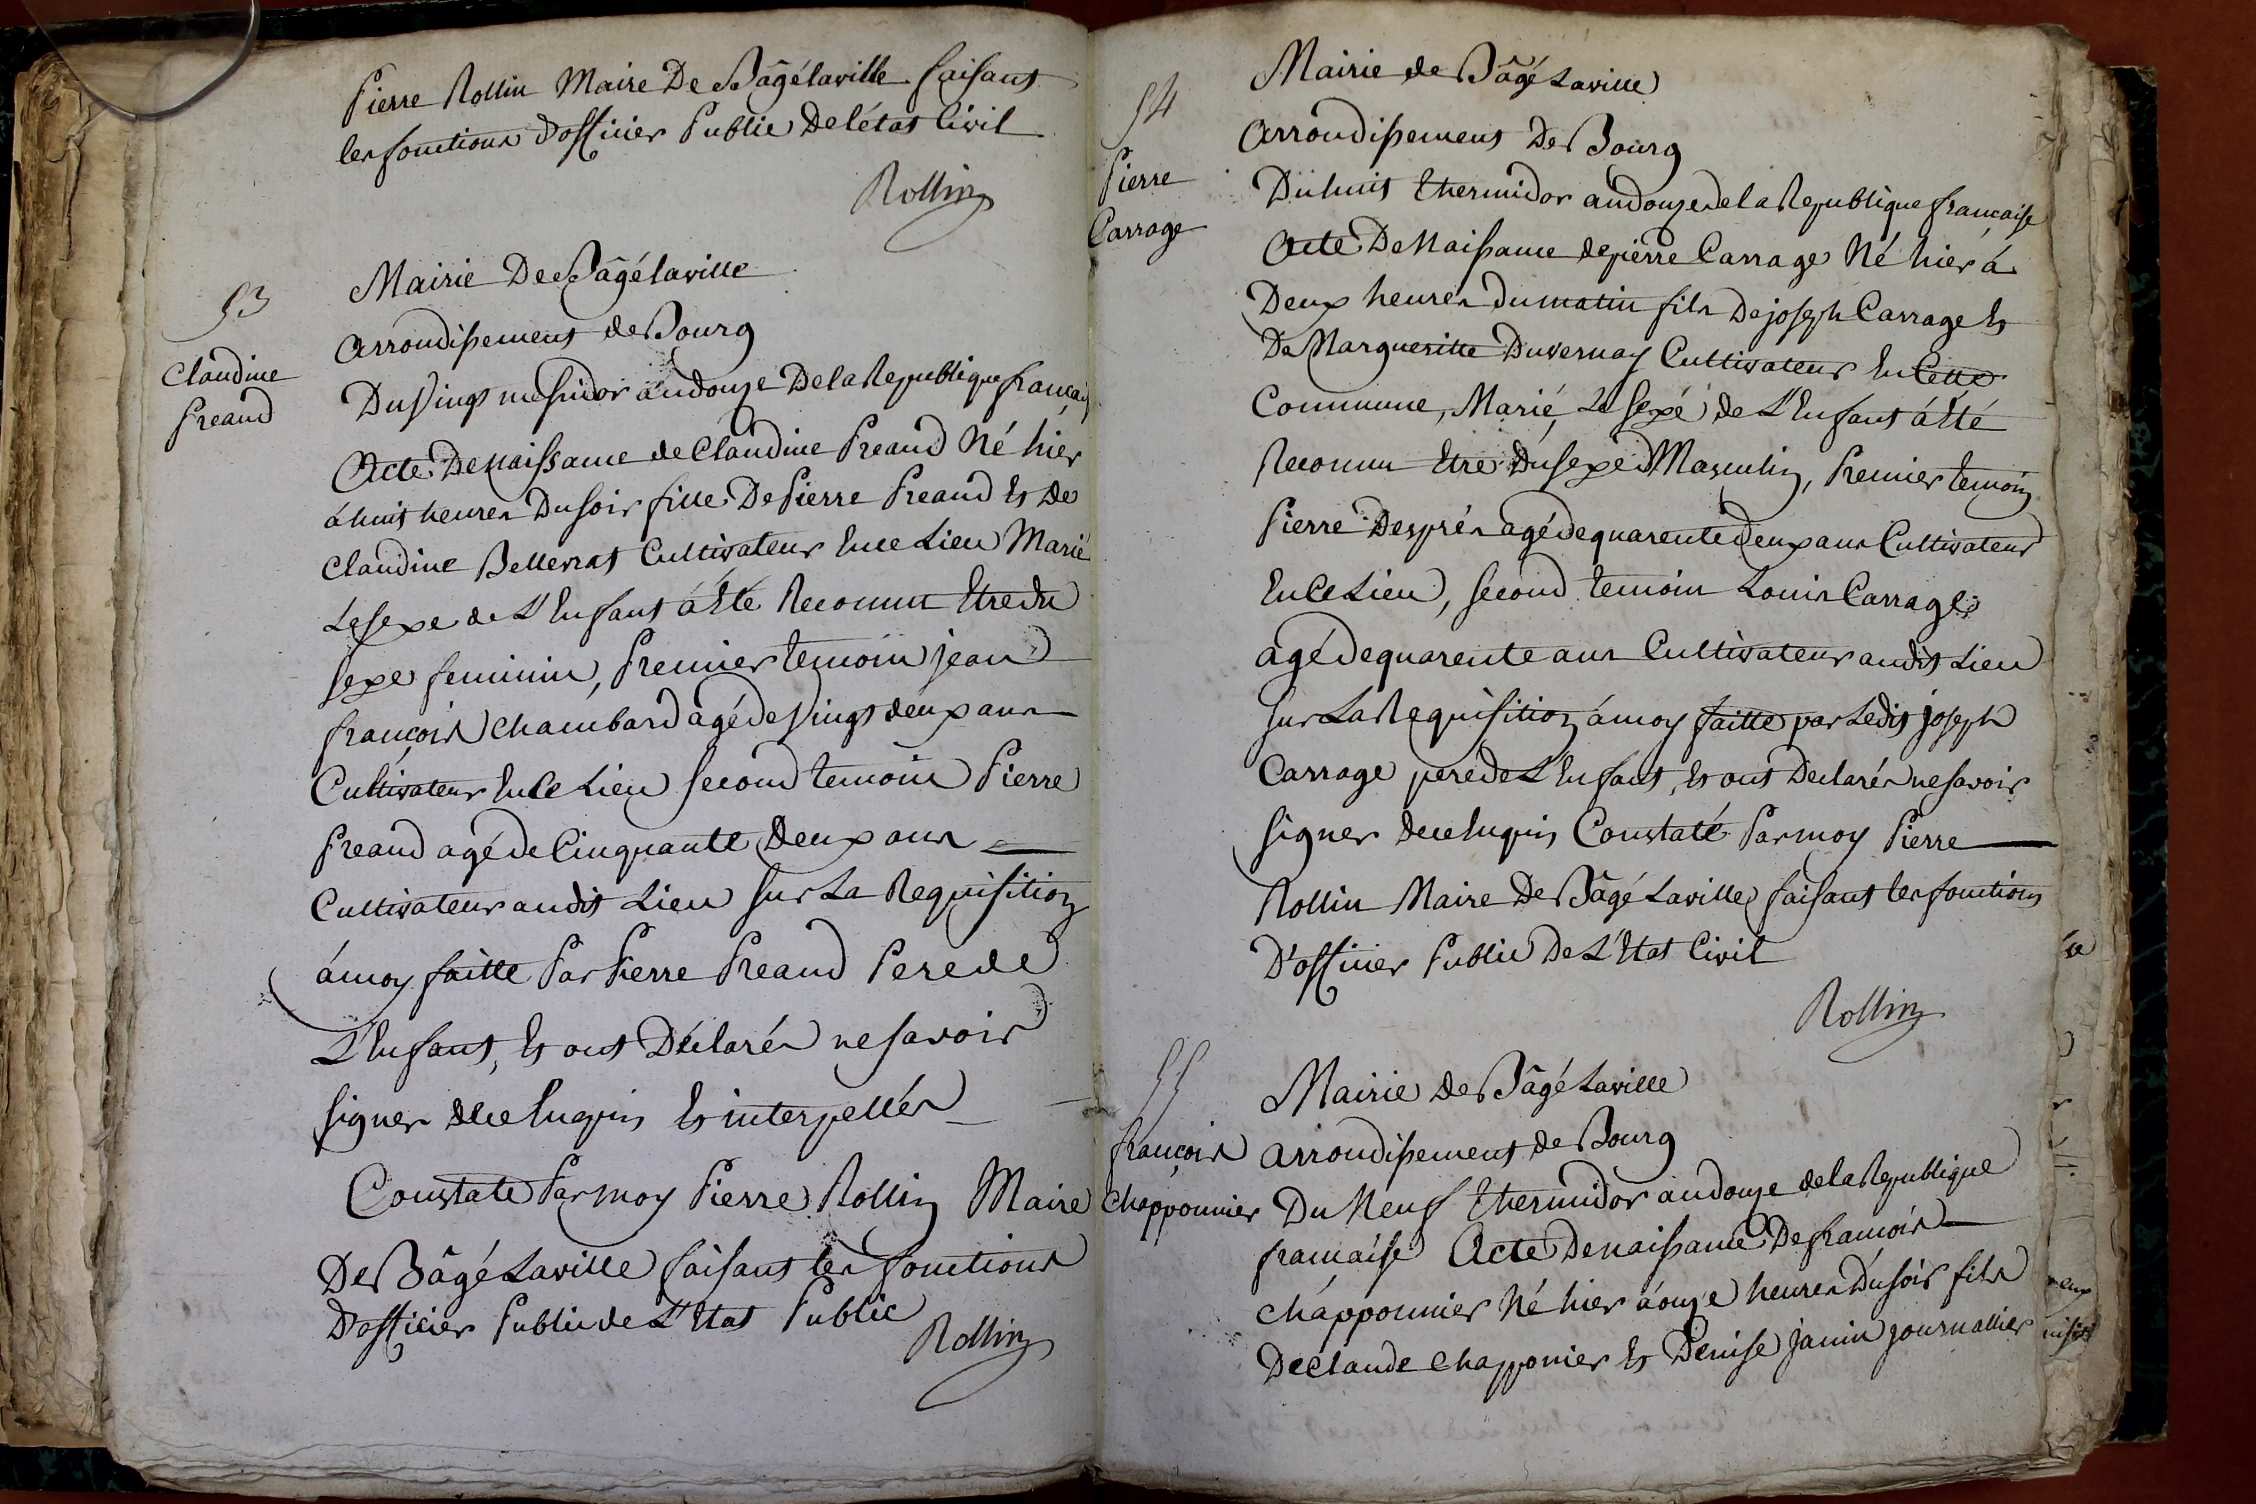 Pierre Rollin Maire De Bâgélaville faisant
les fonctions d'officier Public De l'état Civil
Rollin
53
Claudine
Preaud
Mairie De Bâgélaville
arrondissement de Bourg
Du Vingt messidor an douze De la Republique françai
Acte De naissance de Claudine Preaud Né hier
á huit heures Du soir fille De Pierre Preaud Et De
Claudine Belverat Cultivateur En ce Lieu Marié
Le sexe de L'Enfant á Eté Reconnu Etre du
sexe feminin, Premier temoin jean
françois Chambard agé de Vingt deux ans
Cultivateur En Ce Lieu second temoin Pierre
Preaud agé de Cinquante Deux ans
Cultivateur audit Lieu sur La Requisition
á moy faitte Par Pierre Preaud Pere de
L'Enfant, Et ont Déclarés ne savoir
signer de ce Enquis Et interpellés
Constaté Par moy Pierre Rollin Maire
De Bâgé Laville faisant les fonctions
D'officier Public de L'Etat Public
Rollin
54
Pierre
Carrage
Mairie de Bâgé Laville
arrondissement De Bourg
Du huit thermidor an douze de la Republique française
Acte De Naissance de pierre Carrage Né hier á
Deux heures du matin fils De joseph Carrage Et
De Margueritte Duvernay Cultivateur En Cette
Commune, Marié, Le sexe de L'Enfant á Eté
Reconnu Etre Du sexe Masculin, Premier temoin
Pierre Desprès agé de quarente Deux ans Cultivateur
En Ce Lieu, second temoin Louis Carrage
agé de quarente ans Cultivateur audit Lieu
sur La Requisition á moy faitte par Ledit joseph
Carrage pere de L'Enfant, Et ont Declarés ne savoir
signer de ce Enquis Constaté Par moy Pierre
Rollin Maire De Bâgé Laville faisant les fonctions
D'officier Public De L'Etat Civil
Rollin
55
françois
Chapponnier
Mairie de Bâgé Laville
arrondissement de Bourg
Du Neuf thermidor an douze de la Republique
française Acte De naissance De francois
Chapponnier Né hier á onze heures Du soir fils
De Claude Chapponier Et Denise janin journallier